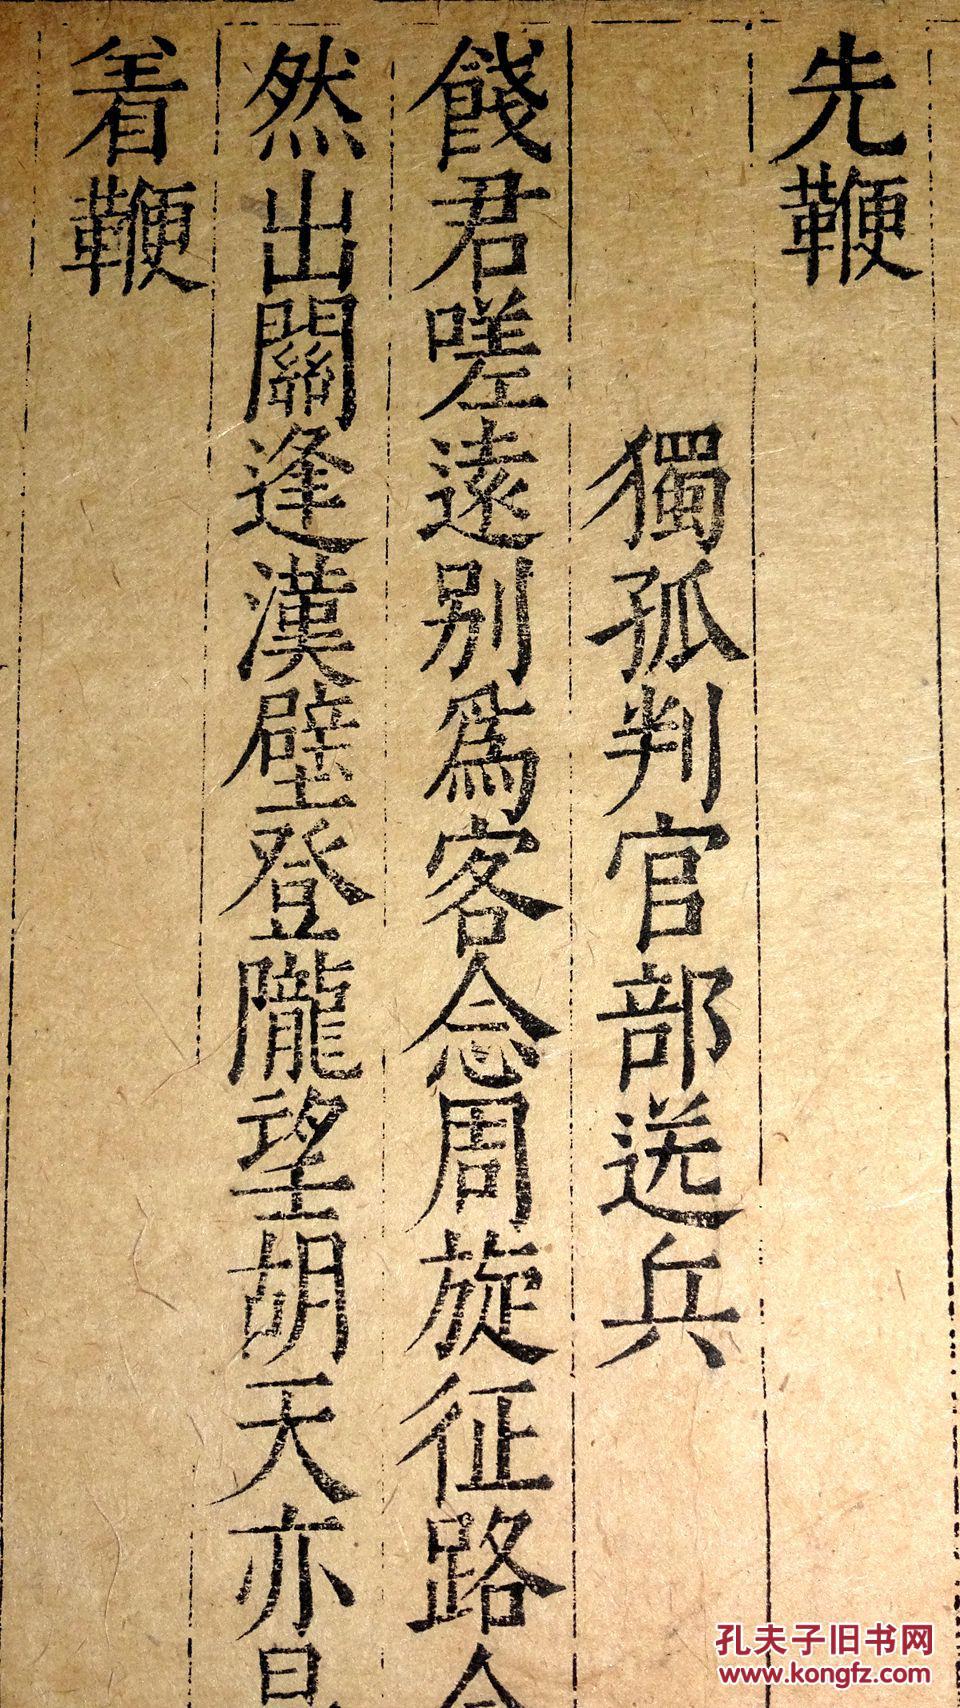 先鞭
獨孤判官部送兵
餞君嗟遠别為客念周旋征路
然出關逢漢壁登隴望胡天亦
着鞭
孔夫子旧书网
www.kongfz.com